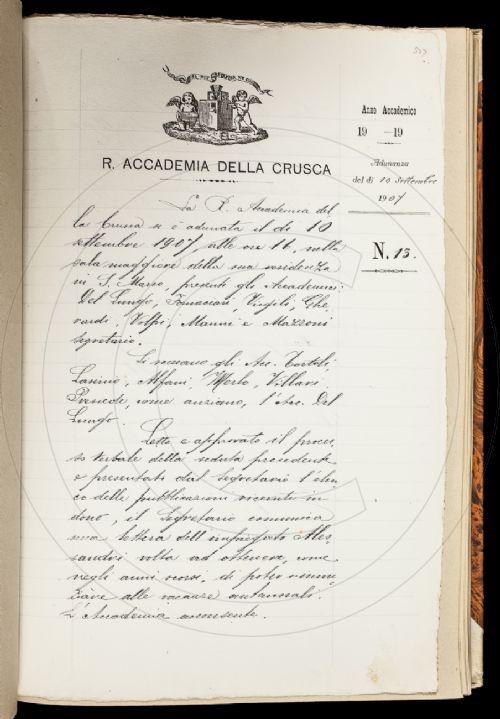 Anno Accademico
19 19
Adunanza
del dì 10 Settembre
1907
N. 13.
R. ACCADEMIA DELLA CRUSCA
La R. Accademia del
la Crusca si è adunata il dì 10
settembre 1907 alle ore 11, nella
sala maggiore della sua residenza
in S. Marco, presenti gli Accademici:
Del Lungo, Tomassai, Vinpeli, Ghe,
rardi, Volpi, Mannì e Mazzoni
segretario.
Si scusano gli Acc. Tortoli,
Lasinio, Alfani, Merlo, Villari.
Presiede, come anziano, l'Acc. Del
Lungo.
Letto e approvato il proces
so verbale della seduta precedente
e presentato dal Segretario l'elen
co delle pubblicazioni ricevute in
dono, il Segretario comunica
una lettera dell'impiegato Ales
sandri volta ad ottenere, come
negli anni scorsi, di poter
alle vacanze autunnali.
L'Accademia acconsente.